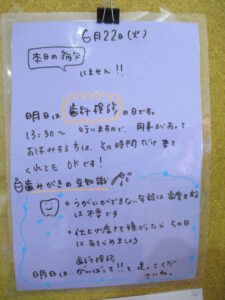 6月22日(火)
本日の病欠
いません!!
明日は 歯科検診 の日です。
13:30〜 行いますので、用事があって
お休みする方は、その時間だけ来て
くれても OKです!
歯みがきの豆知識
・うがいができない年齢は歯磨き粉
は不要です
・仕上げ磨きを嫌がったらその日
はあきらめましょう
明日は 歯科検診
がんばって!! と送ってくだ
さいね。